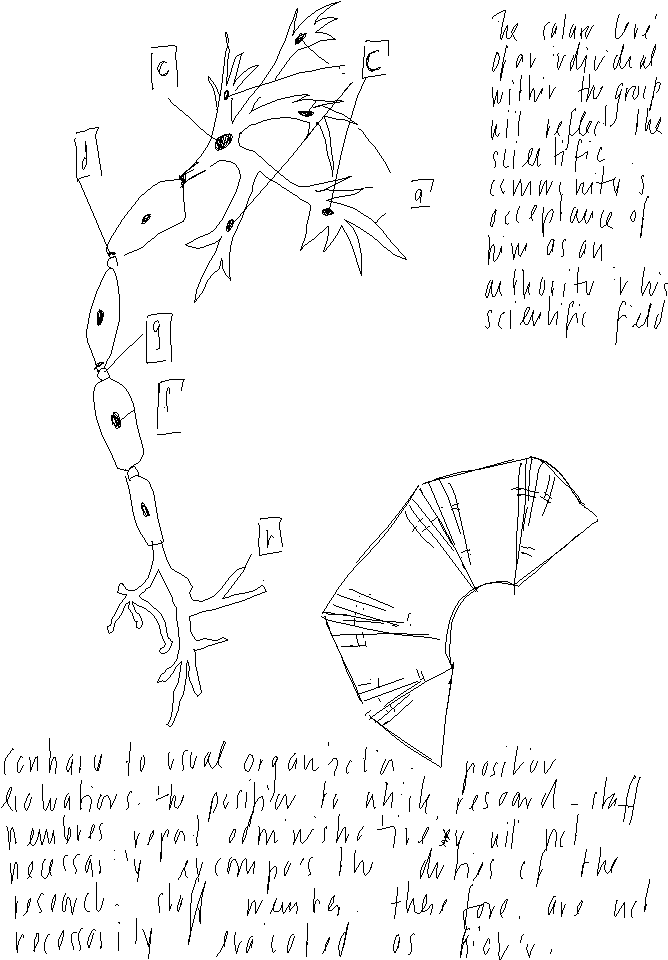 c
C
d
a
g
f
r
The salary level
of an individual
within the group
will reflect the
scientific
community's
acceptance of
him as an
authority in his
scientific field
contrary to usual organization. position
evaluations. the position to which research-staff
membres report administratively will not
necessarily encompass the duties of the
research. staff member. therefore. are not
necessarily evaluated as